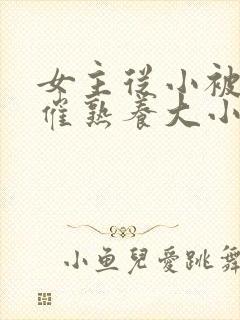 女主從小被
催熟養大小
小魚兒愛跳舞